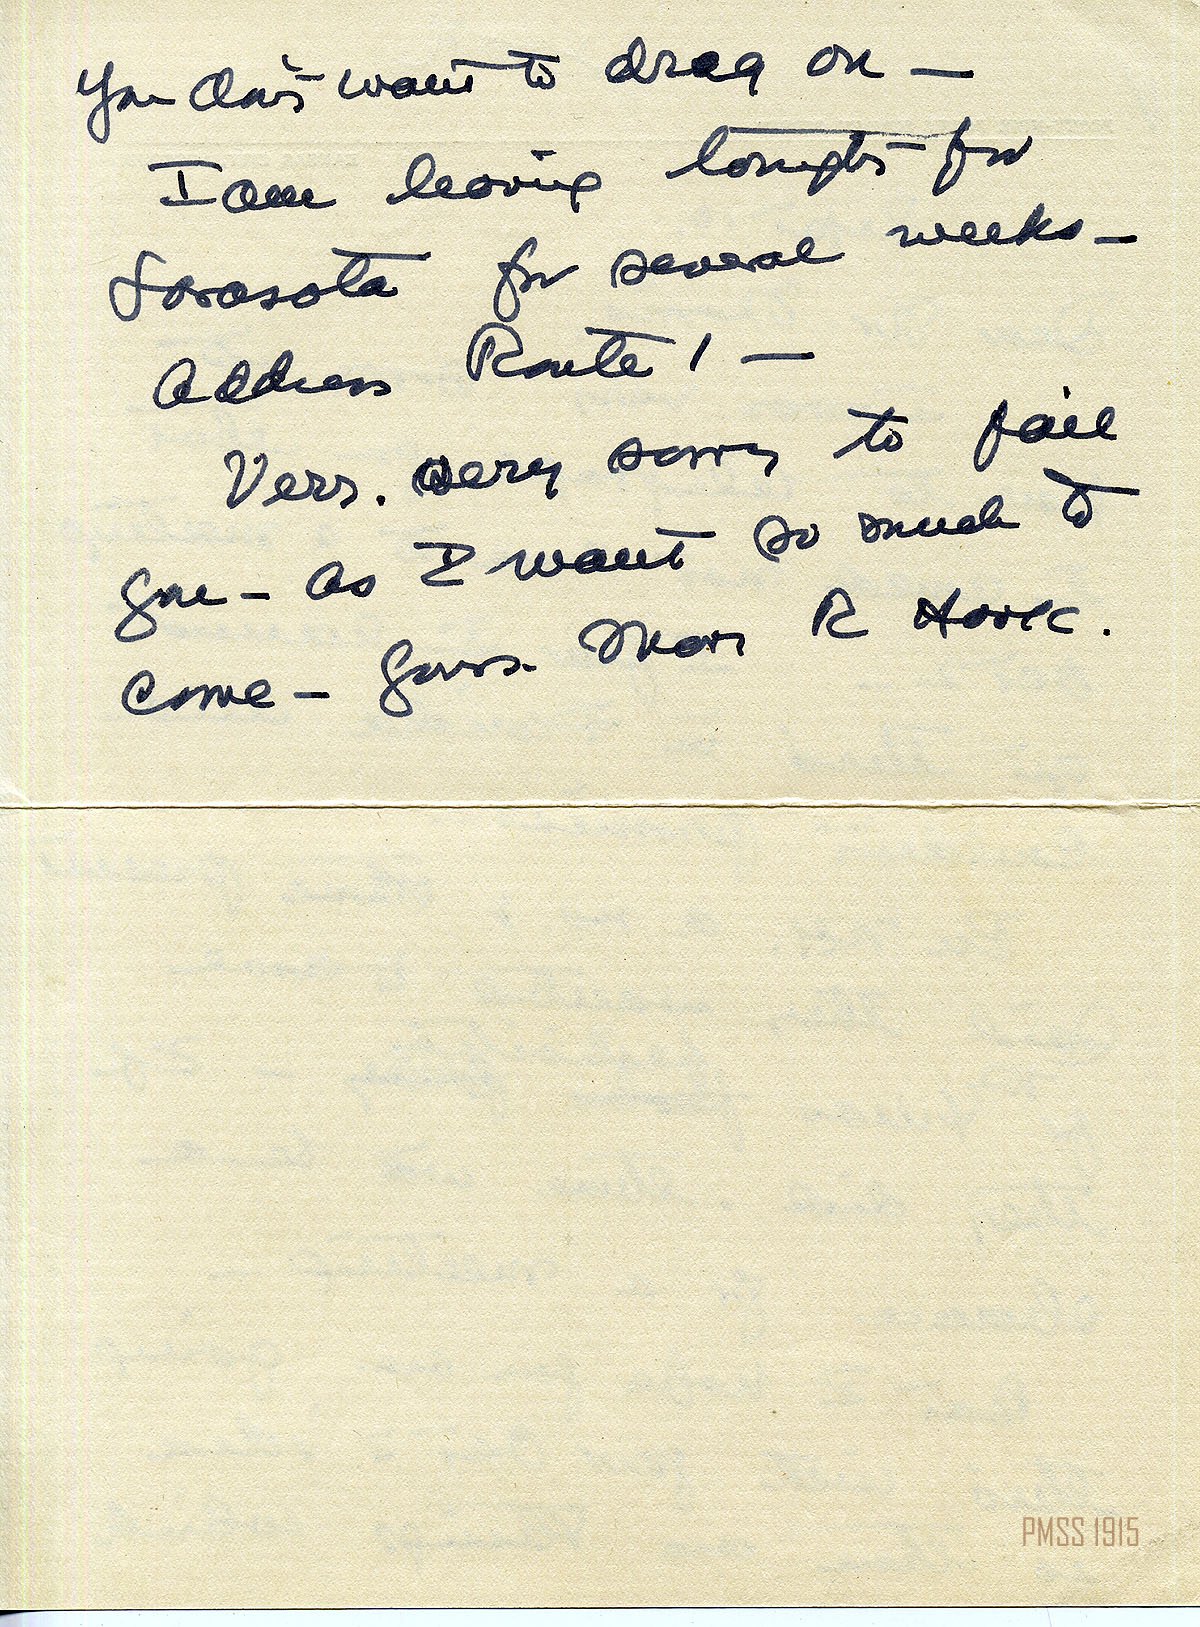 You don't want to drag on —
I am leaving tonight for
Sarasota for several weeks —
Address Route 1 —
Very. very sorry to fail
you — as I want so much to
come — yours. Mary R Hook.
PMSS 1915